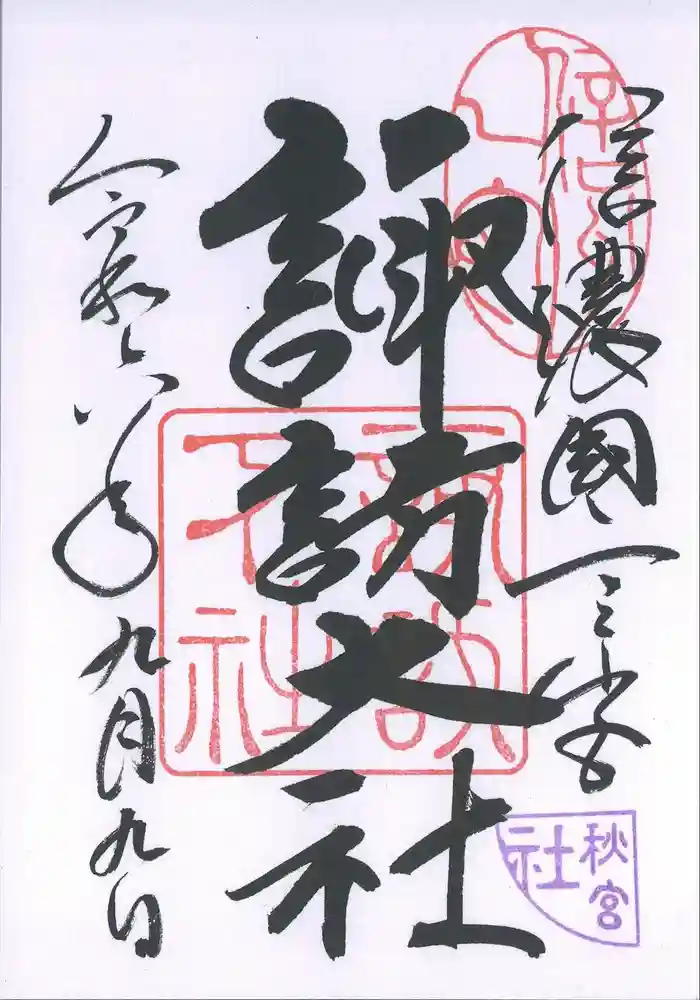 信濃國一之宮
諏訪大社
令和六年九月九日
諏訪下社
秋宮
社